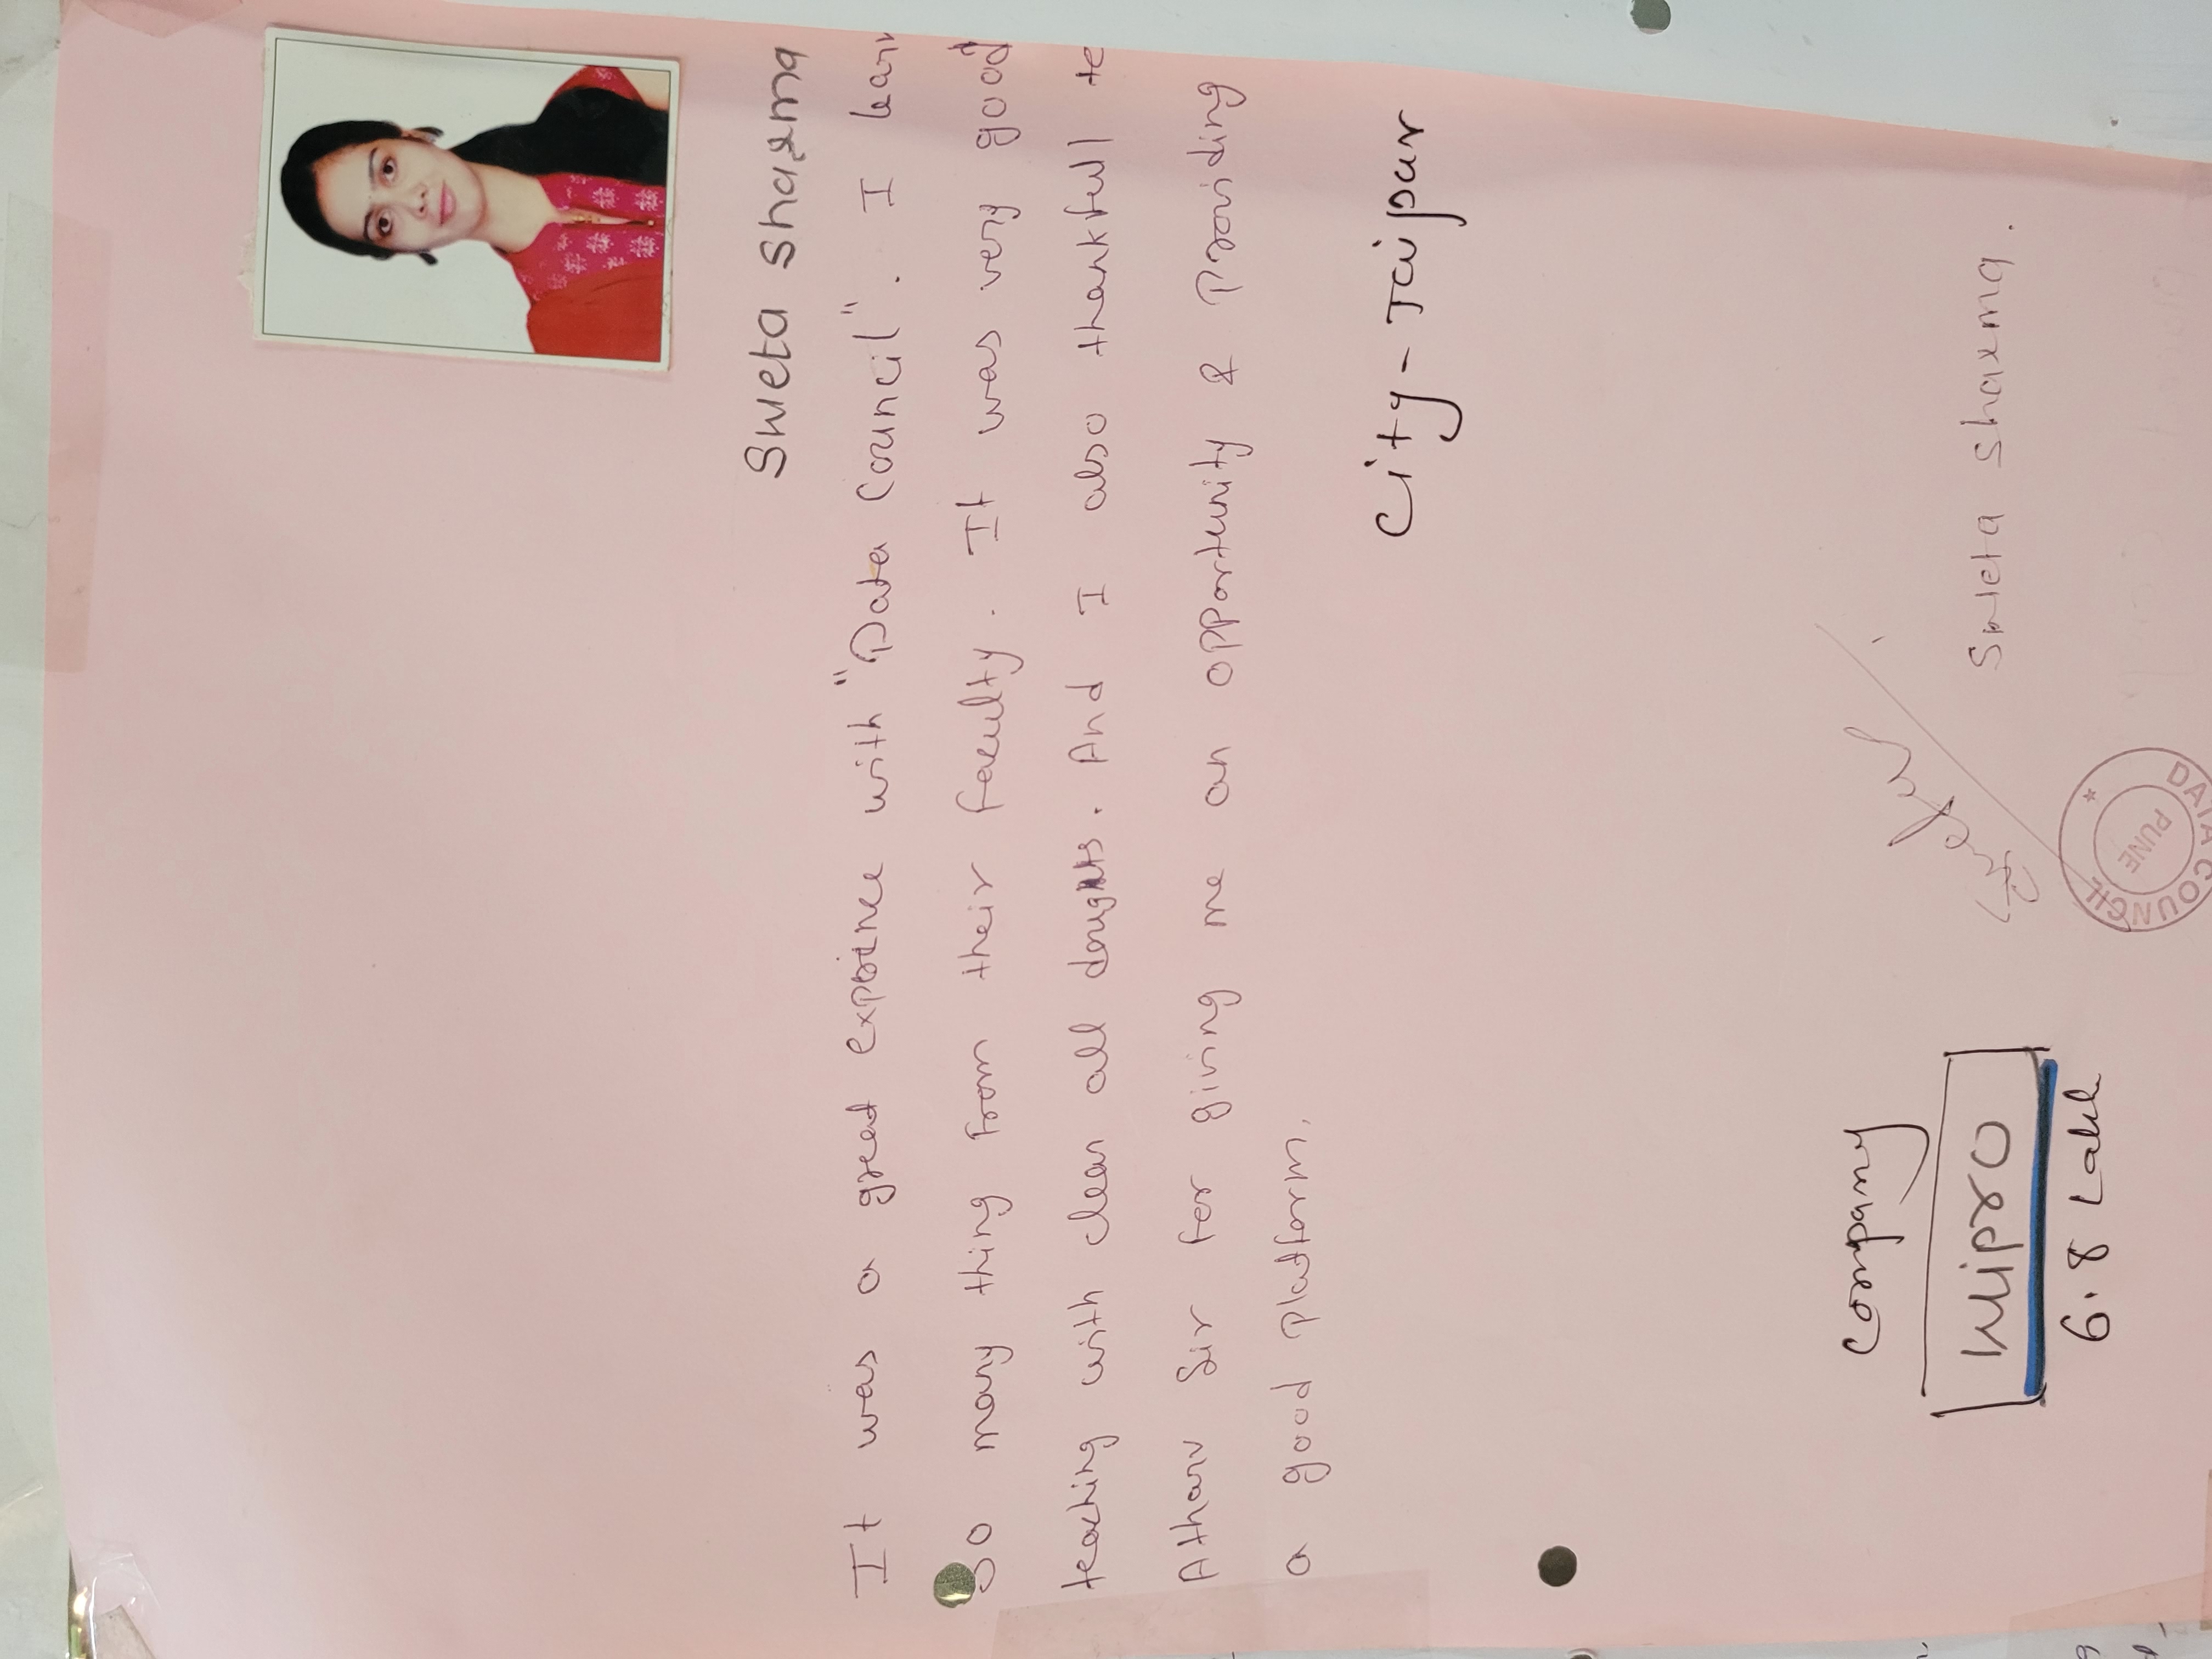 Sweta Sharma
It was a great experince with "Data Council". I learn
So many thing from their faculty. It was very good
teaching with clear all doughts. And I also thankfull to
Atharv Sir for giving me an opportunity & Providing
a good platform.
City - Jaipur
Company
Wipro
6.8 Lakh
Sweta Sharma.
DATA COUNCIL
PUNE